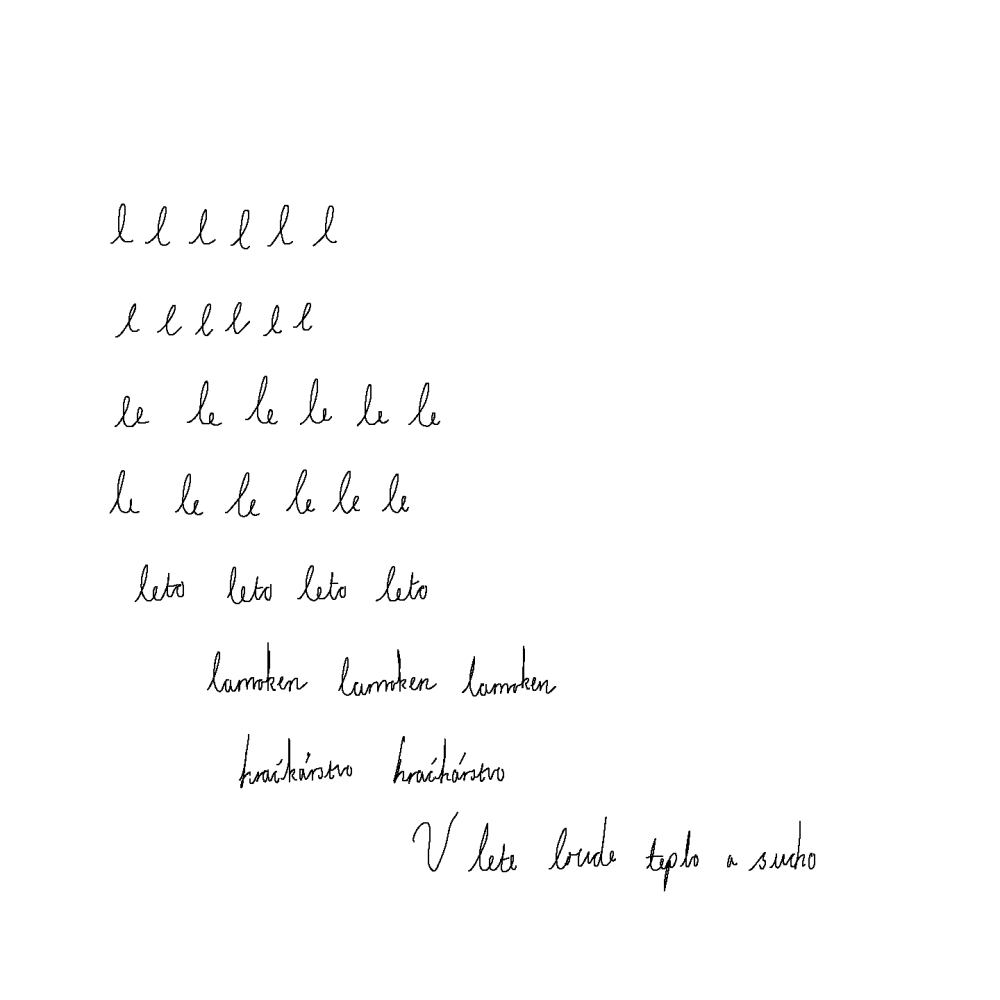 l l l l l l
l l l l l l
le le le le le le
le le le le le le
leto leto leto leto
lamoken lamoken lamoken
hračkárstvo hračkárstvo
V lete bude teplo a sucho